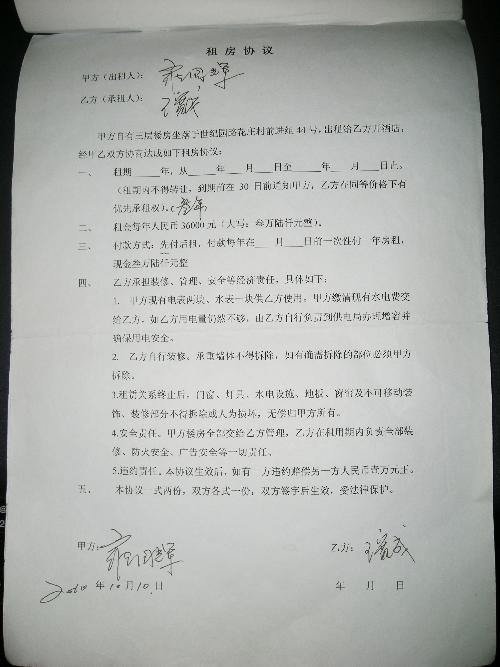 租房协议
甲方（出租人）：
乙方（承租人）：
甲方自有三层楼房坐落于世纪园路花庄村前进组44号，出租给乙方开酒店，
经甲乙双方协商达成如下租房协议：
一、 租期____年，从____年____月____日至____年____月____日止。
（租期内不得转让，到期前在30日前通知甲方，乙方在同等价格下有
优先承租权）。（叁年
二、 租金每年人民币36000元（大写：叁万陆仟元整）。
三、 付款方式：先付后租，付款每年在____月____日前一次性付一年房租，
现金叁万陆仟元整
四、 乙方承担装修、管理、安全等经济责任，具体如下：
1. 甲方现有电表两块、水表一块供乙方使用，甲方缴清现有水电费交
给乙方，如乙方用电量仍然不够，由乙方自行负责到供电局办理增容并
确保用电安全。
2. 乙方自行装修。承重墙体不得拆除，如有确需拆除的部位必须甲方
拆除。
3.租赁关系终止后，门窗、灯具、水电设施、地板、窗帘及不可移动装
饰、装修部分不得拆除或人为损坏，无偿归甲方所有。
4.安全责任。甲方楼房全部交给乙方管理，乙方在租用期内负责全部装
修、防火安全、广告安全等一切责任。
5.违约责任。本协议生效后，如有一方违约赔偿另一方人民币壹万元正。
五、 本协议一式两份，双方各式一份，双方签字后生效，受法律保护。
甲方：
乙方：
2010年10月10日
年 月 日